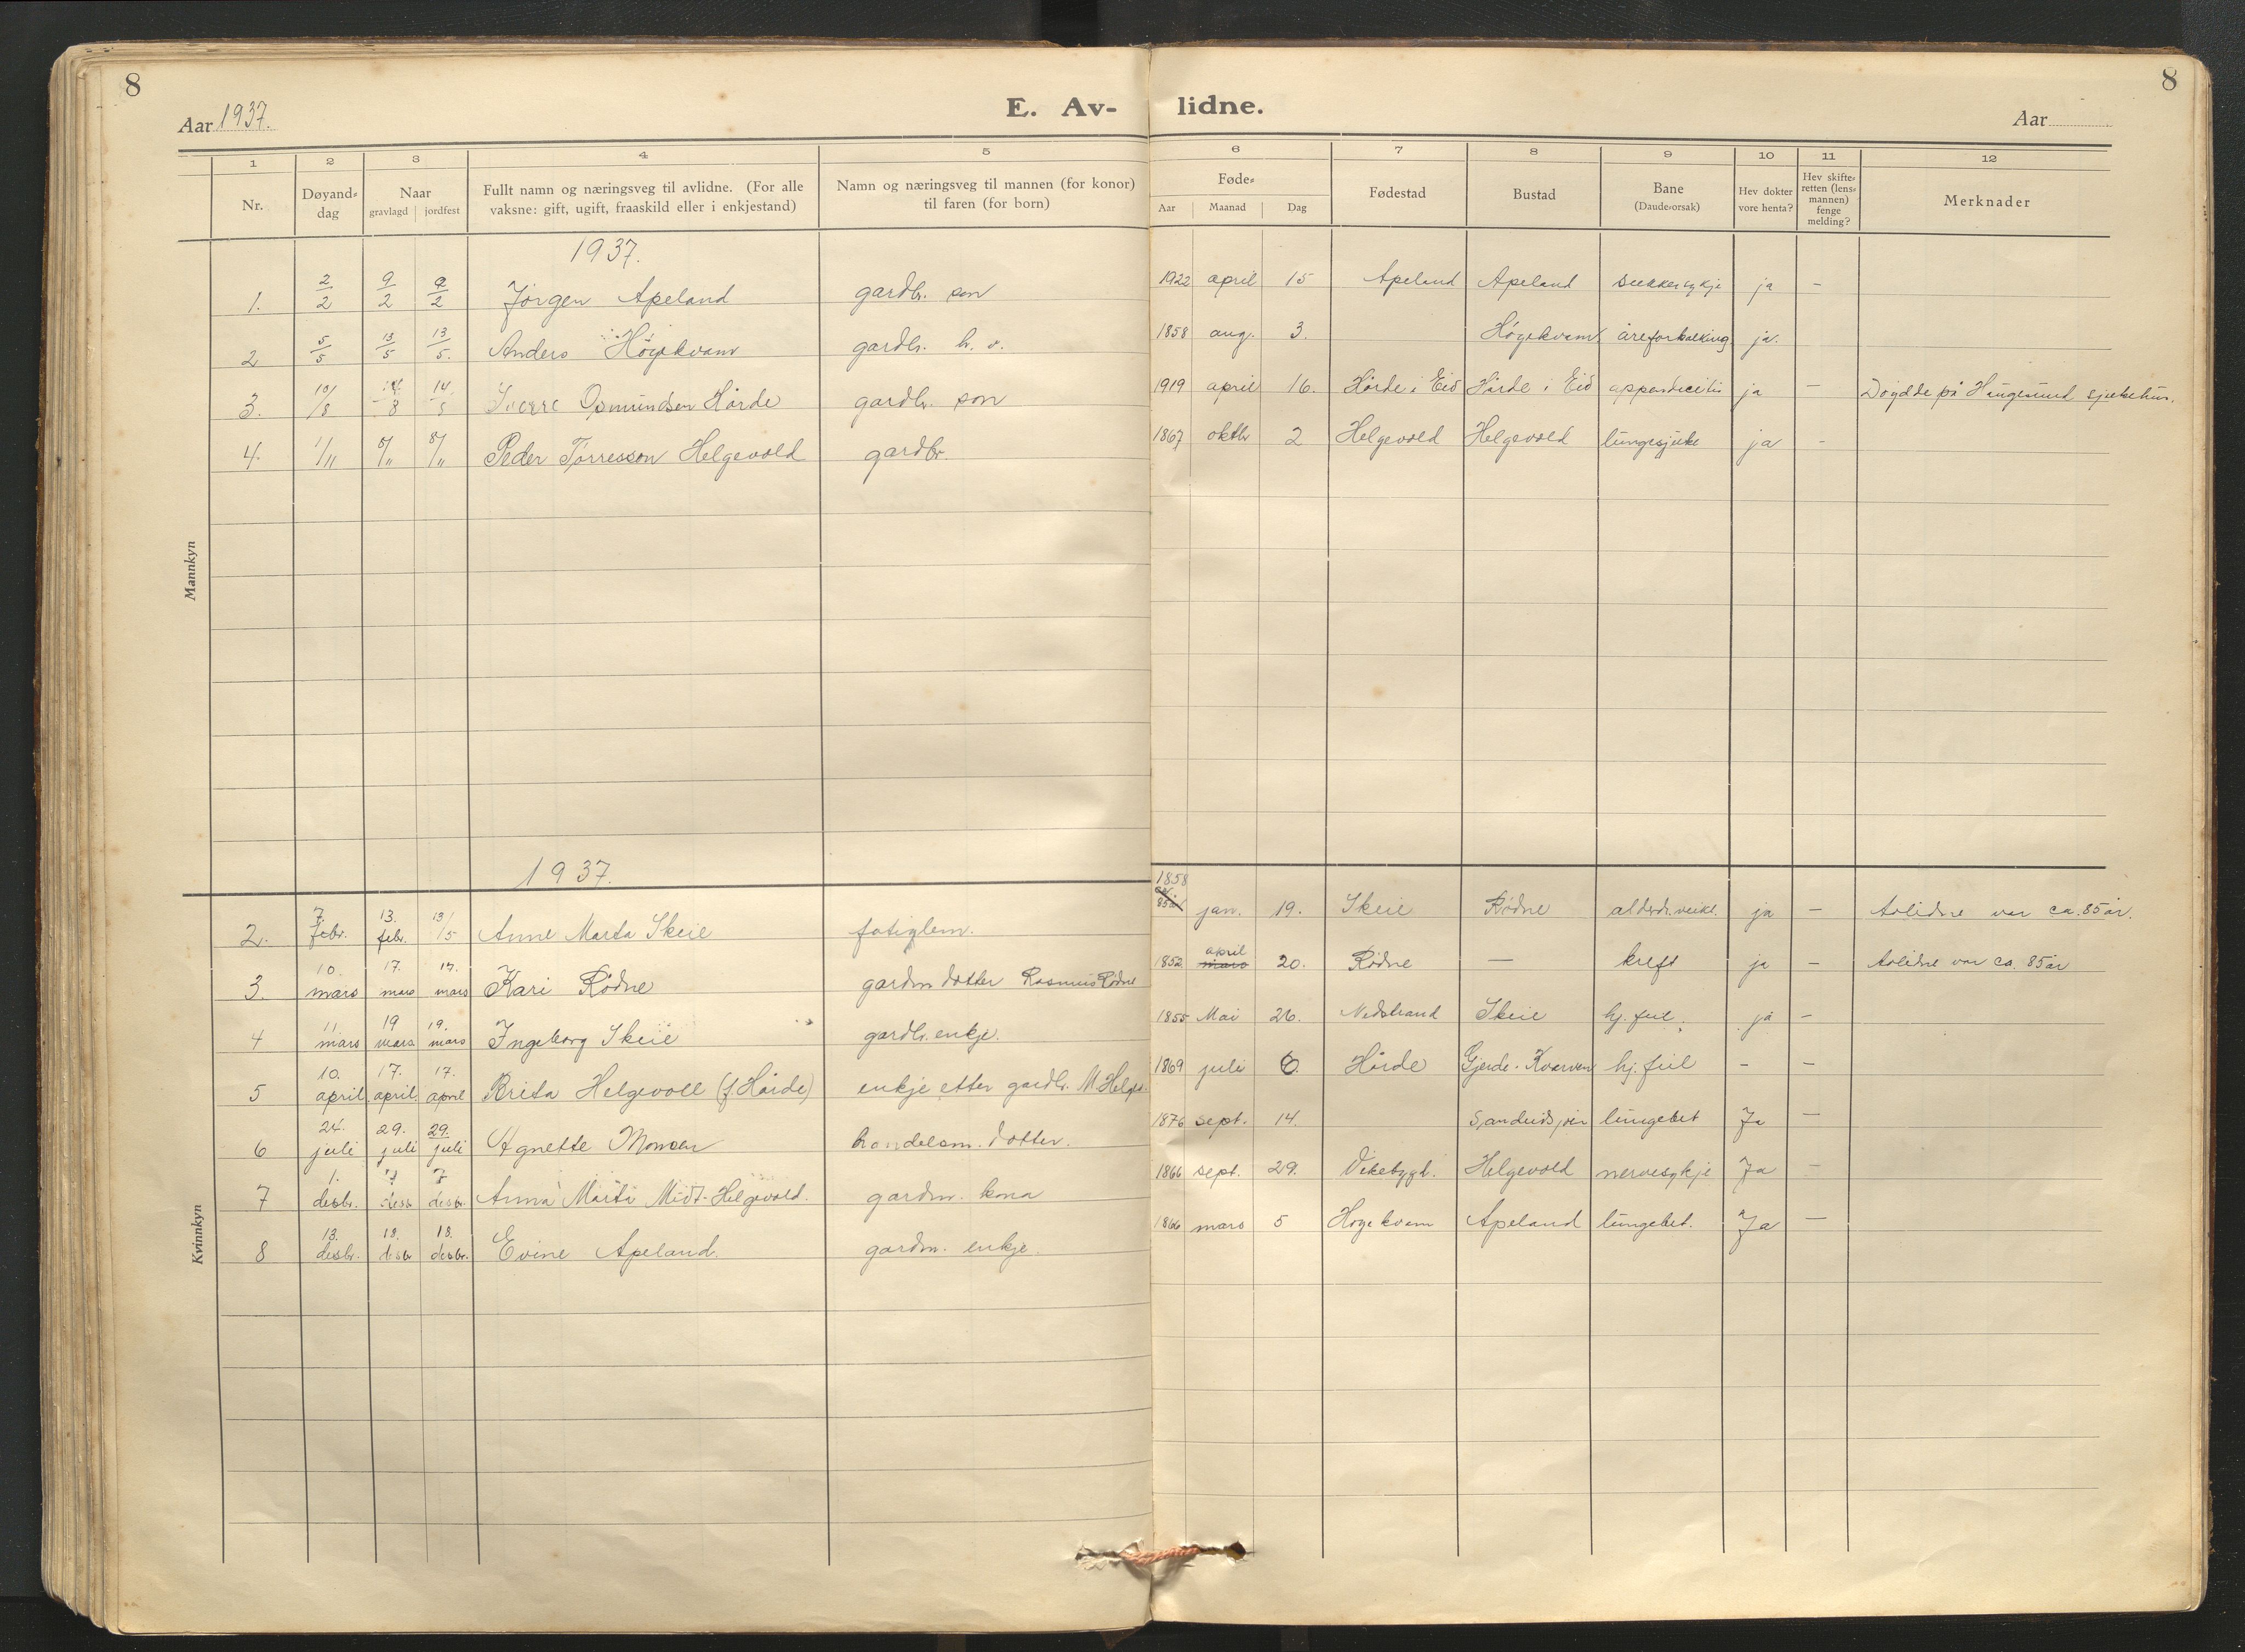 8
Aar 1937.
E. Av-
lidne.
Aar
8
1 2 3 4 5 6 7 8 9 10 11 12
Nr. Døyand-dag Naar gravlagd jordfest Fullt namn og næringsveg til avlidne. (For alle vaksne: gift, ugift, fraaskild eller i enkjestand) Namn og næringsveg til mannen (for konor) til faren (for born) Føde- Aar Maanad Dag Fødestad Bustad Bane (Daude-orsak) Hev dokter vore henta? Hev skifte-retten (lens-mannen) fenge melding? Merknader
Mannkyn
1937.
1. 2/2 9/2 9/2 Jørgen Apeland gardbr. son 1922 april 15 Apeland Apeland sukkersykje ja –
2 5/5 13/5 13/5. Anders Høgekvam gardbr. h. v. 1858 aug. 3. Høgekvam åreforkalking. ja.
3. 10/8 14/8 14/8 Sverre Osmundsen Hårde gardbr. son 1919 april 16. Hårde i Eid Hårde i Eid appendicitis ja – Døydde på Haugesund sjukehus.
4. 1/11 8/11 8/11 Peder Tørresson Helgevold gardbr. 1867 oktbr 2 Helgevold Helgevold lungesjuke ja –
Kvinnkyn
1937.
2. 7. febr. 13. febr. 13/5 Anne Marta Skeie fatiglem. 1858 jan. 19. Skeie Rødne alderdr.veikl. ja – Avlidne var ca. 85 år.
3. 10. mars 17. mars 17. mars Kari Rødne gardm dotter Rasmus Rødne 1852 april mars 20. Rødne — kreft ja – Avlidne var ca. 85 år
4 11. mars 19 mars 19. mars Ingeborg Skeie gardbr. enkje. 1855 Mai 26. Nedstrand Skeie hj. feil. ja –
5 10. april. 17. april. 17. april Brita Helgevoll (f. Hårde) enkje etter gardbr. M Helgev. 1869 juli 6. Hårde Gjerde-Kvarven hj. feil – –
6 24. juli 29. juli 29. juli Agnette Monsen handelsm. dotter. 1876 sept. 14. Sandeidsjøen lungebet Ja –
7 1. desbr. 7 desb 7 desbr. Anna Marta Midt-Helgevold. gardm. kona 1866 sept. 29. Vikebygd. Helgevold nervesykje Ja –
8 13. desbr. 18. desbr 18. desbr. Evine Apeland. gardm. enkje. 1866 mars 5 Høgekvam Apeland lungebet. Ja –